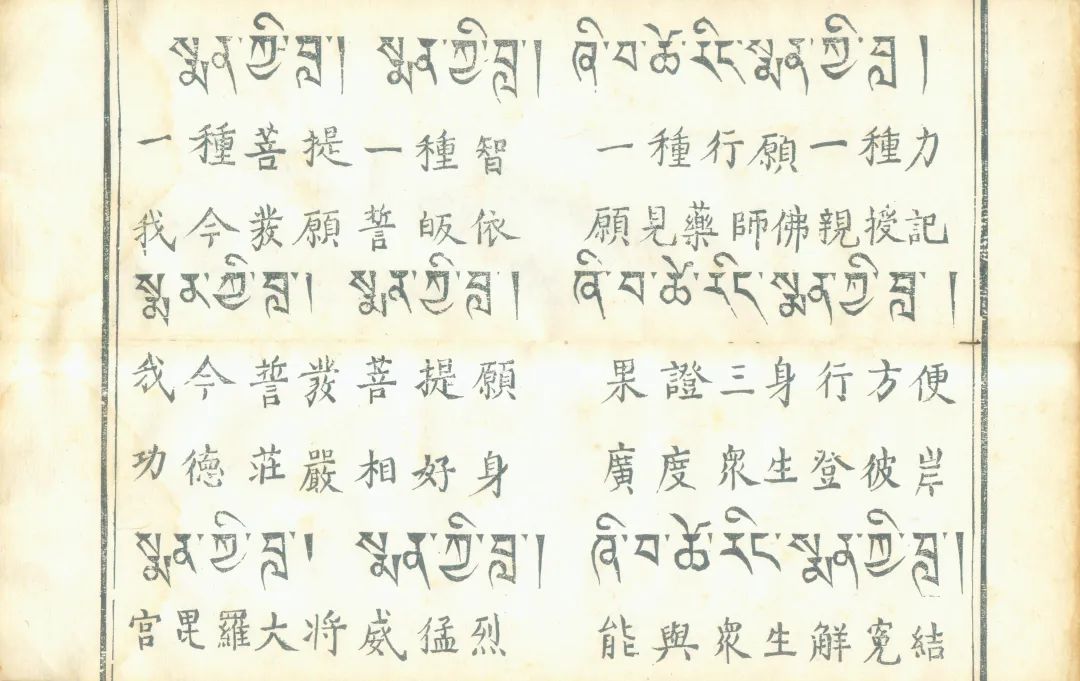 སྨན་ཀྱི་བླ། སྨན་ཀྱི་བླ། ཞི་བ་ཚེ་རིང་སྨན་ཀྱི་བླ།
一種菩提一種智 一種行願一種力
我今發願誓皈依 願見藥師佛親授記
སྨན་ཀྱི་བླ། སྨན་ཀྱི་བླ། ཞི་བ་ཚེ་རིང་སྨན་ཀྱི་བླ།
我今誓發菩提願 果證三身行方便
功德莊嚴相好身 廣度衆生登彼岸
སྨན་ཀྱི་བླ། སྨན་ཀྱི་བླ། ཞི་བ་ཚེ་རིང་སྨན་ཀྱི་བླ།
宫毘羅大将威猛烈 能與衆生解冤結